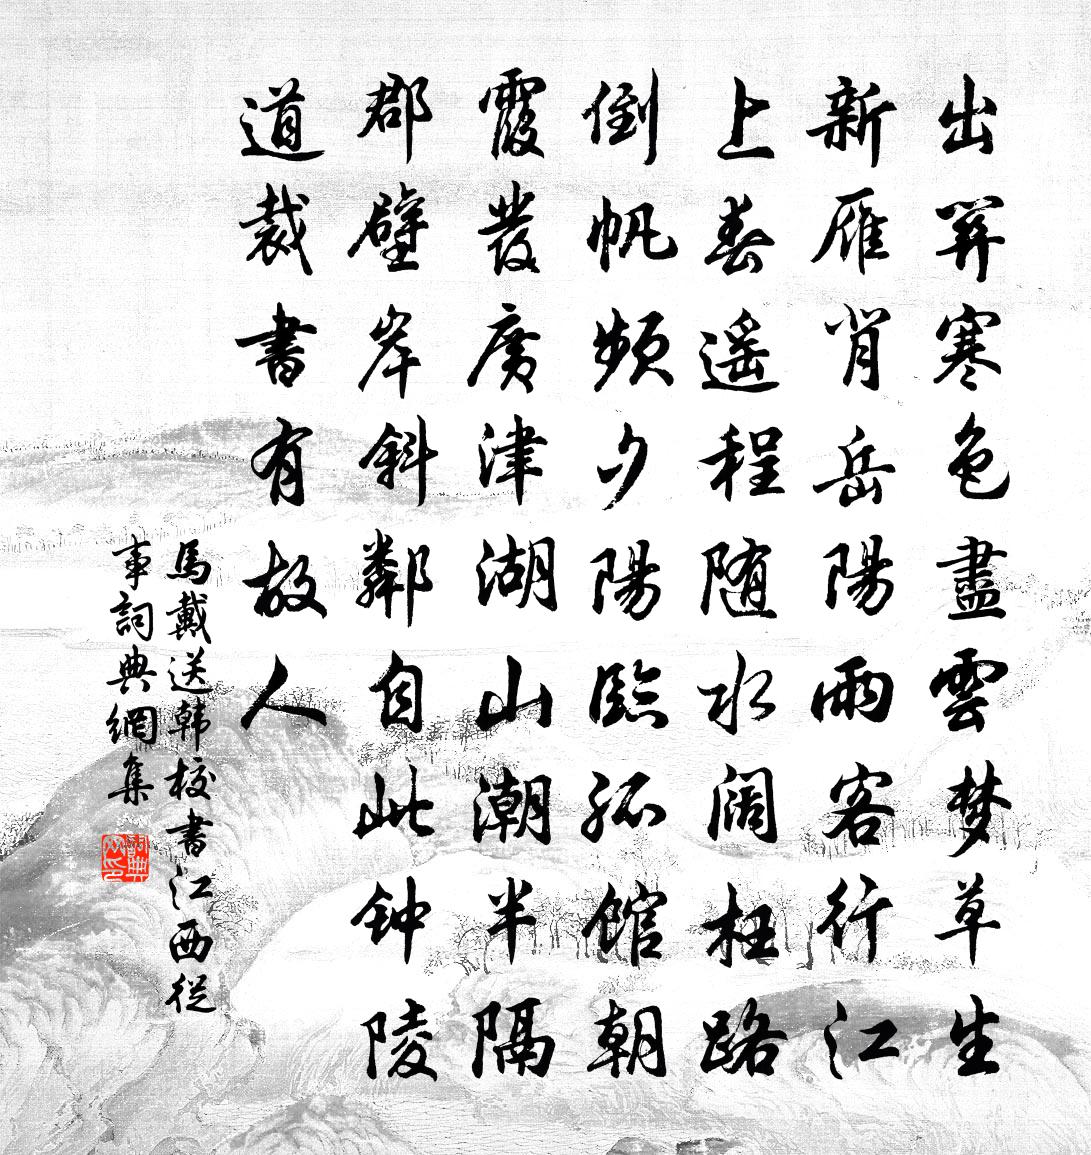 出關寒色盡雲梦草生
新雁背岳陽雨客行江
上春遥程随水阔枉路
倒帆頻夕陽臨孤館朝
霞發廣津湖山潮半隔
郡壁岸斜鄰自此钟陵
道裁書有故人
馬戴送韩校書江西從
事詞典網集